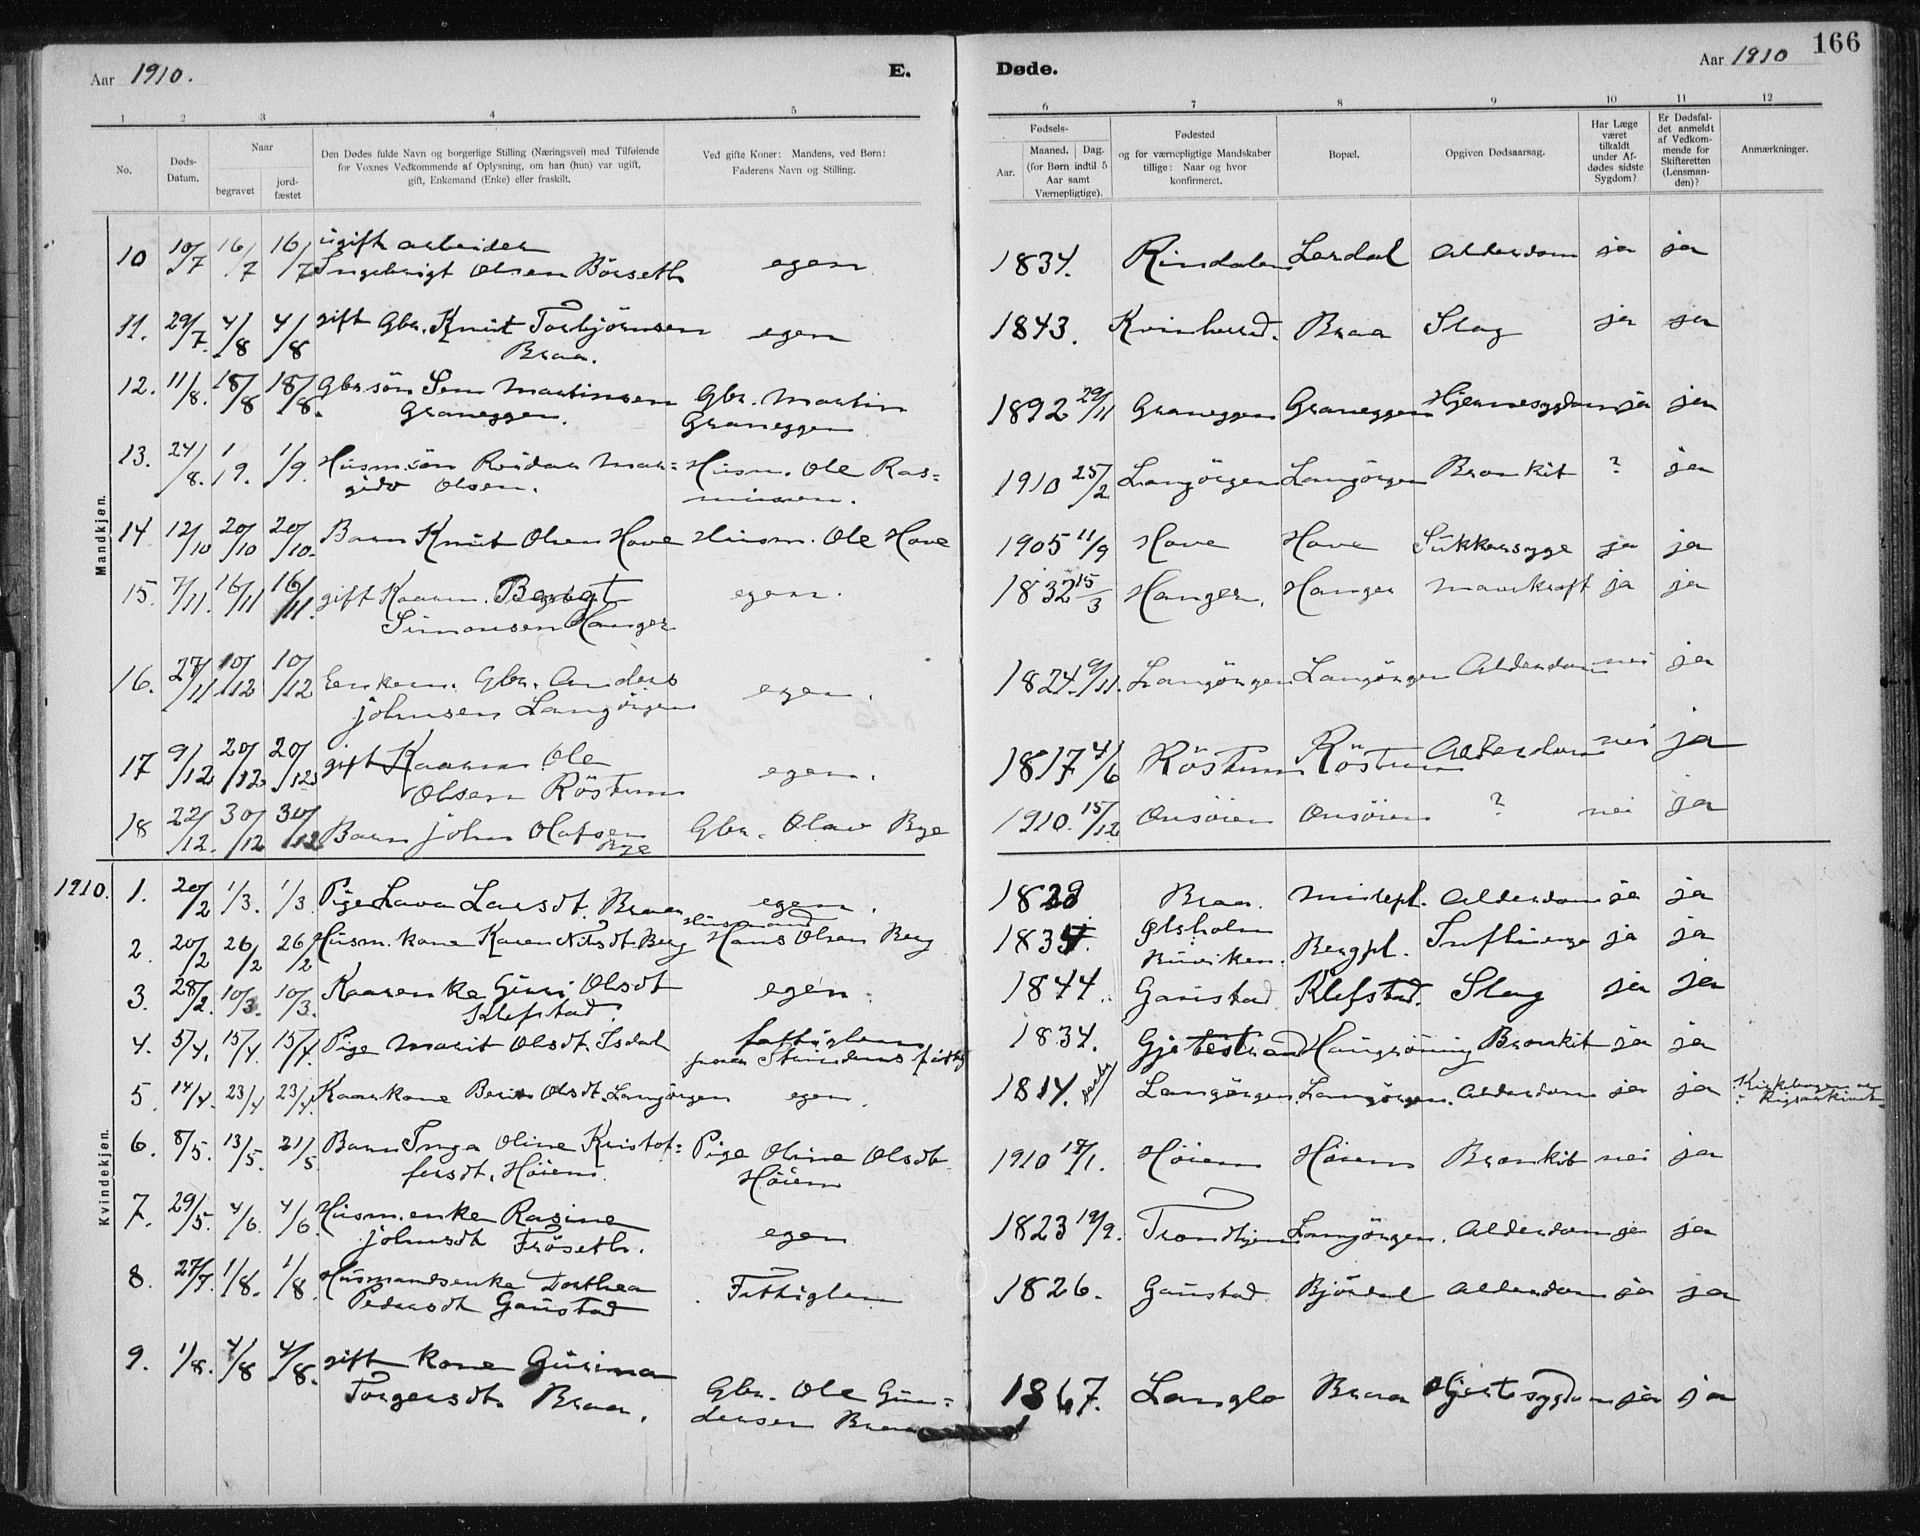 Aar 1910. E.
Døde. Aar 1910 166
1 2 3 4 5
6 7 8 9 10 11 12
No. Døds-Datum. Naar begravet jord-fæstet Den Dødes fulde Navn og borgerlige Stilling (Næringsvei) med Tilføiende for Voxnes Vedkommende af Oplysning, om han (hun) var ugift, gift, Enkemand (Enke) eller fraskilt. Ved gifte Koner: Mandens, ved Børn: Faderens Navn og Stilling.
Fødsels- Aar. Maaned. Dag. (for Børn indtil 5 Aar samt Værnepligtige). Fødested og for værnepligtige Mandskaber tillige: Naar og hvor konfirmeret. Bopæl. Opgiven Dødsaarsag. Har Læge været tilkaldt under Afdødes sidste Sygdom? Er Dødsfaldet anmeldt af Vedkommende for Skifteretten (Lensmanden)? Anmærkninger.
Mandkjøn.
10 10/7 16/7 16/7 ugift arbeider
Ingebrigt Olsen Börseth egen 1834. Rindalen Lerdal Alderdom ja ja
11. 29/7. 4/8 4/8 gift Gbr. Knut Torbjörnsen
Braa. egen 1843. Kvinherred. Braa Slag ja ja
12. 11/8. 18/8 18/8. Gbr.sön Martinsen
Graneggen. Gbr. Martin
Graneggen 1892 29/11 Graneggen Graneggen Hjernesygdom ja ja
13. 24/8. 1/9. 1/9. Husm.sön Reidar Mar=
gido Olsen. Husm. Ole Ras=
mussen. 1910 25/2 Langörgen Langörgen Bronkit ? ja
14 12/10 20/10 20/10. Barn Knut Olsen Hove Husm. Ole Hove 1905 11/9 Hove Hove Sukkersyge ja ja
15. 7/11. 16/11 16/11. gift Kaarm. Bengt
Simonsen Hanger egen. 1832 15/3 Hanger. Hanger Mavekræft ja ja
16. 27/11 10/12 10/12 Enkem. Gbr. Anders
Johnsen Langörgen egen. 1824. 9/11. Langörgen Langörgen Alderdom nei ja
17 9/12 20/12 20/12 gift Kaarm. Ole
Olsen Röstum egen. 1817 4/6 Röstum Röstum Alderdom nei ja
18 22/12. 30/12 30/12 Barn John Olafsen
Bye Gbr. Olav Bye 1910. 15/12 Onsöien Onsöien ? nei ja
Kvindekjøn.
1910. 1. 20/2 1/3. 1/3. Pige Lava Larsdt. Braa egen. 1829 Braa. Alderdom ja ja
2. 20/2 26/2 26/2 Husm. kone Karen Nilsdt. Berg Husmand
Hans Olsen Berg 183 Ölsholm
Buviken. Bergpl. Influenza ja ja
3. 28/2. 10/3. 10/3. Kaarenke Guri Olsdt
Klefstad. egen. 1844. Gaustad Klefstad. Slag ja ja
4. 5/4. 15/4. 15/4. Pige Marit Olsdt. Isdal fattiglem 1834. Haugröning Bronkit ja ja
5. 14/4. 23/4 23/4. Kaarkone Olsdt. Langörgen egen. 1814. Langörgen. Langörgen. Alderdom ja ja Kirkebogen
6. 8/5. 13/5. 21/5 Barn Inga Oline Kristof=
fersdt. Höiem. Pige Oline Olsdt.
Höiem 1910 18/1. Höiem Höiem Bronkit nei ja
7. 29/5. 4/6. 4/6. Husm.enke Rasine
Johnsdt Fröseth. egen 1823 19/9. Trondhjem Langörgen. Alderdom ja ja
8. 27/7. 1/8. 1/8. Husmandsenke Dorthea
Pedersdt Gaustad Fattiglem 1826. Gaustad Alderdom ja ja
9. 1/8. 4/8 4/8. gift kone Gurina
Torgersdt. Braa. Gbr. Ole Gun=
dersen Braa 1867. Langlo Braa Hjertesygdom ja ja